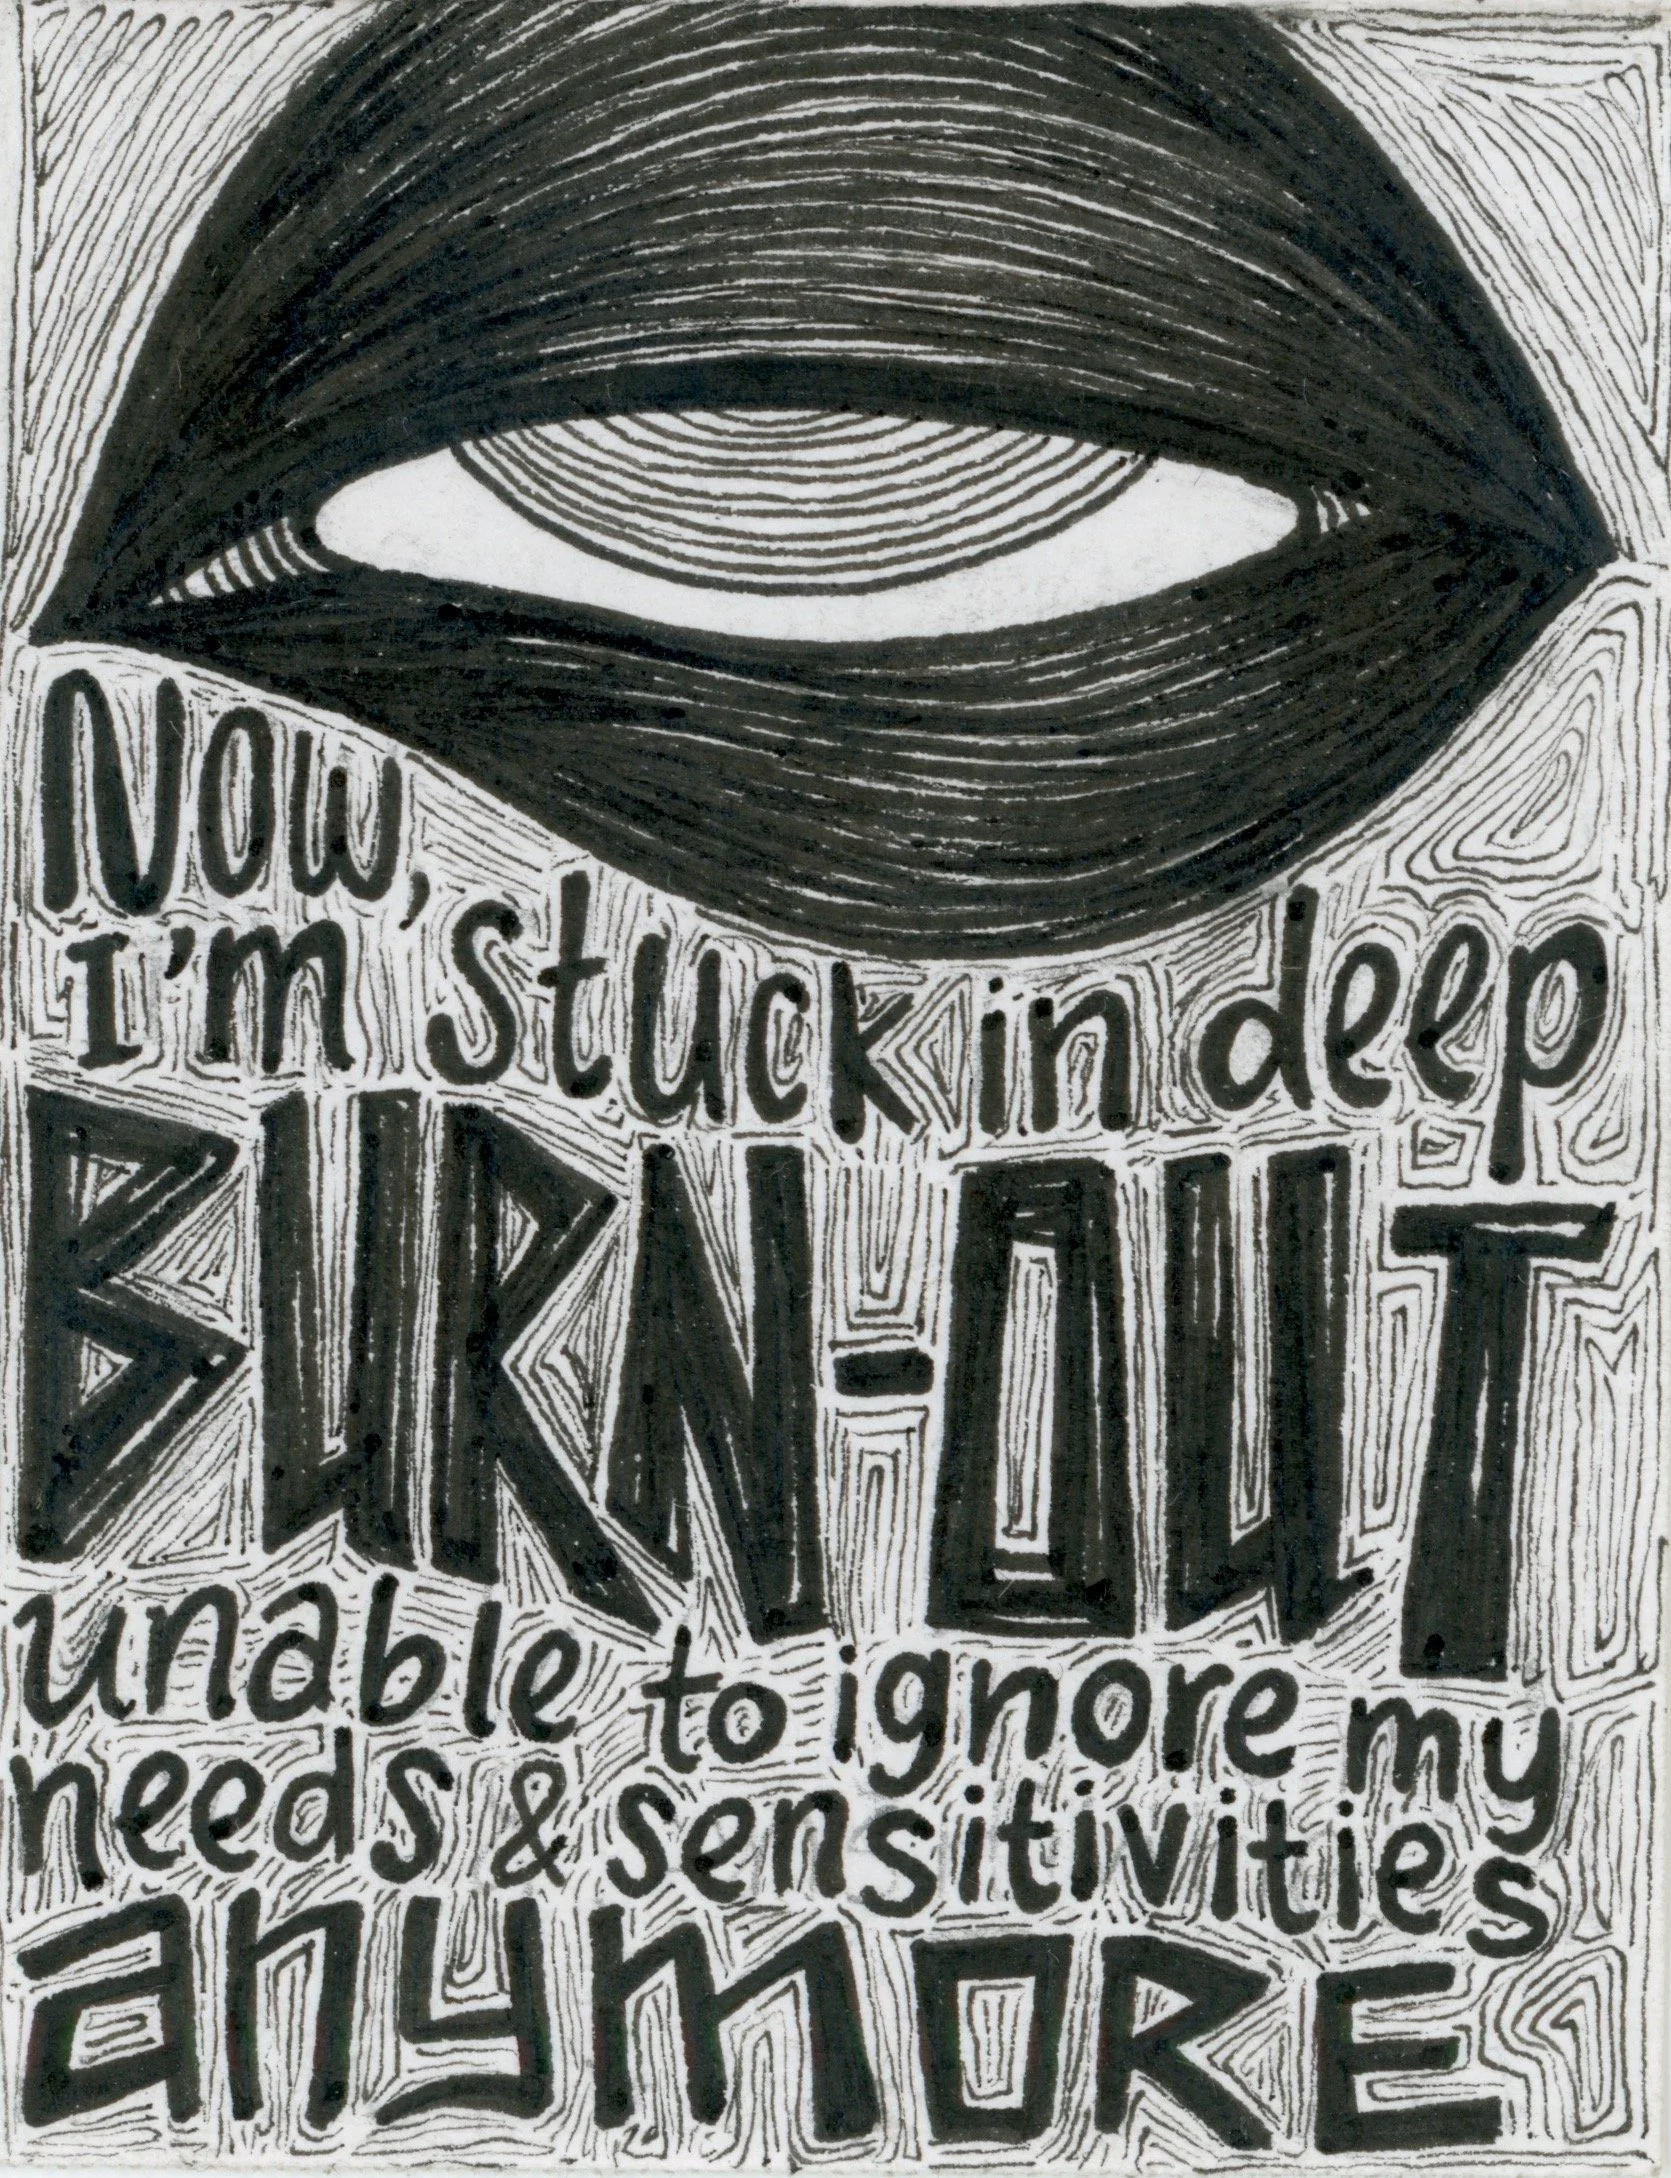 Now,
I'm stuck in deep
BURN-OUT
unable to ignore my
needs & sensitivities
anymORE